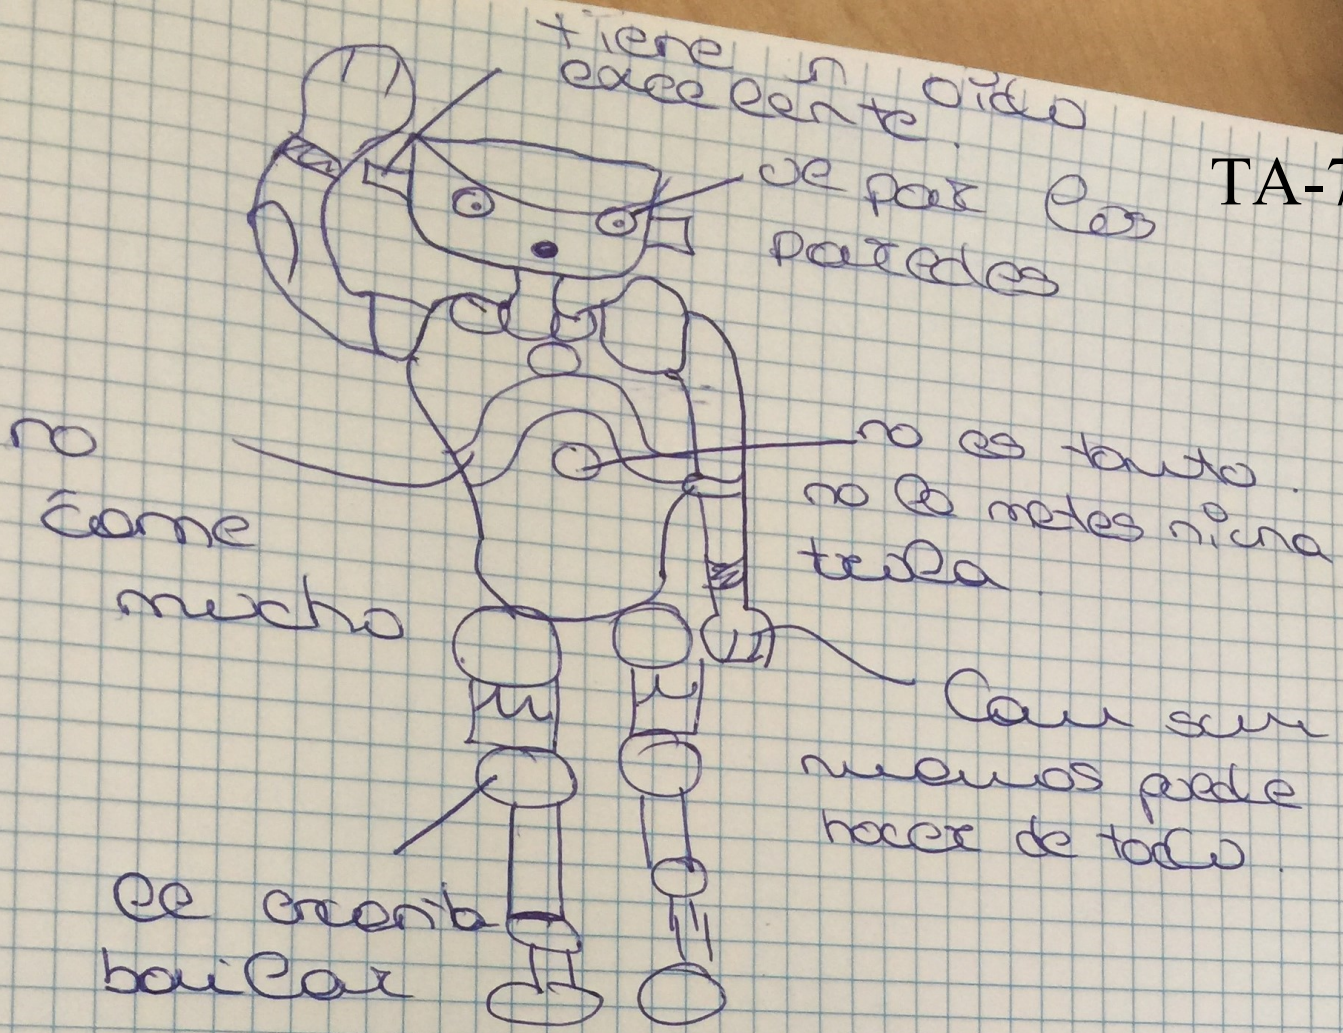 tiene n oído
excelente.
ve por los
paredes
TA-7
no
come
mucho
no es tonto.
no lo metes nicna
trola
Con sus
manos puede
hacer de todo.
le encanta
bailar